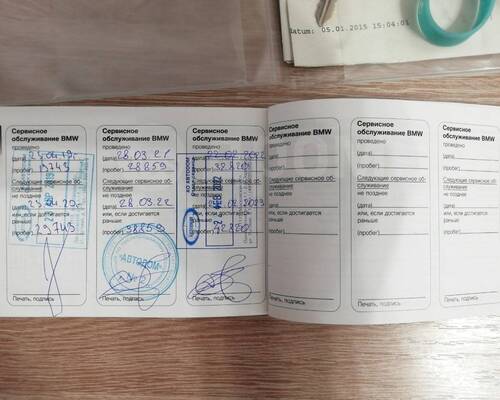 atum: 05.01.2015 15:04:01
Сервисное
обслуживание BMW
проведено
(дата)
(пробег)
Следующие сервисное об-
служивание
не позднее
(дата)
или, если достигается
раньше:
(пробег) 29743
Печать, подпись
Сервисное
обслуживание BMW
проведено
(дата) 28.03.21
(пробег) 28859
Следующие сервисное об-
служивание
не позднее
(дата) 28 03.22
или, если достигается
раньше:
(пробег) 38859
"АВТОДОМ"
Печать, подпись
Сервисное
обслуживание BMW
проведено
(дата)
(пробег) 32820
Следующие сервисное об-
служивание
не позднее
(дата)
или, если достигается
раньше:
(пробег) 42820
Печать, подпись
Сервисное
обслуживание BMW
проведено
(дата)
(пробег)
Следующие сервисное об-
служивание
не позднее
(дата)
или, если достигается
раньше:
(пробег)
Печать, подпись
Сервисное
обслуживание BMW
проведено
(дата)
(пробег)
Следующие сервисное об-
служивание
не позднее
(дата)
или, если достигается
раньше:
(пробег)
Печать, подпись
Сервисное
обслуживание BMW
проведено
(дата)
(пробег)
Следующие сервисное об-
служивание
не позднее
(дата)
или, если достигается
раньше:
(пробег)
Печать, подпись